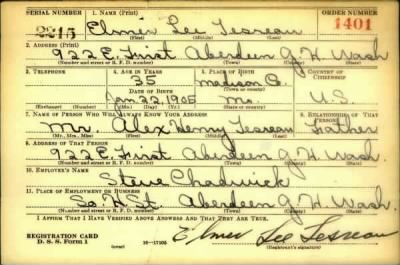 SERIAL NUMBER 1. NAME (Print) ORDER NUMBER
2215 Elmer Lee Tesreau 1401
(First) (Middle) (Last)
2. ADDRESS (Print)
922 E. First Aberdeen G.H. Wash
(Number and street or R. F. D. number) (Town) (County) (State)
3. TELEPHONE 4. AGE IN YEARS 5. PLACE OF BIRTH 6. COUNTRY OF CITIZENSHIP
35 Madison Co.
DATE OF BIRTH (Town or county)
Jan 22, 1905 Mo. U.S.
(Exchange) (Number) (Mo.) (Day) (Yr.) (State or country)
7. NAME OF PERSON WHO WILL ALWAYS KNOW YOUR ADDRESS 8. RELATIONSHIP OF THAT PERSON
Mr. Alex Henry Tesreau Father
(Mr., Mrs., Miss) (First) (Middle) (Last)
9. ADDRESS OF THAT PERSON
922 E. First Aberdeen G.H. Wash.
(Number and street or R. F. D. number) (Town) (County) (State)
10. EMPLOYER'S NAME
Steve Chadwick
11. PLACE OF EMPLOYMENT OR BUSINESS
So. H St. Aberdeen G.H. Wash.
(Number and street or R. F. D. number) (Town) (County) (State)
I AFFIRM THAT I HAVE VERIFIED ABOVE ANSWERS AND THAT THEY ARE TRUE.
REGISTRATION CARD Elmer Lee Tesreau
D. S. S. Form 1 16—17105 (Registrant's signature)